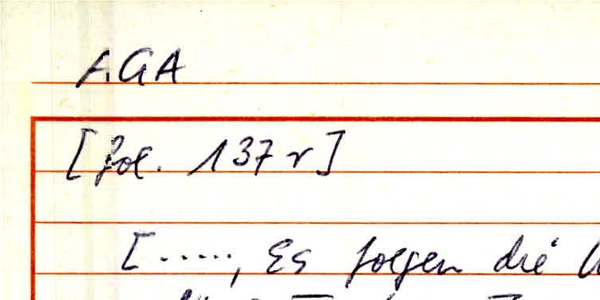 AGA
[fol. 137 r]
[....., Es folgen die